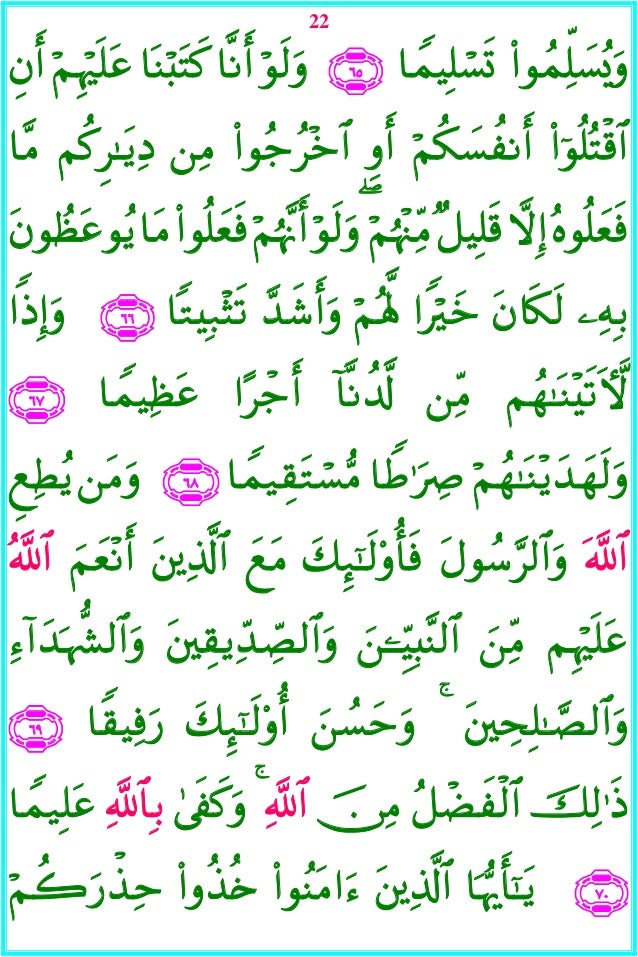 22
وَيُسَلِّمُوا۟ تَسْلِيمًا ٦٥ وَلَوْ أَنَّا كَتَبْنَا عَلَيْهِمْ أَنِ
ٱقْتُلُوٓا۟ أَنفُسَكُمْ أَوِ ٱخْرُجُوا۟ مِن دِيَـٰرِكُم مَّا
فَعَلُوهُ إِلَّا قَلِيلٌ مِّنْهُمْ ۖ وَلَوْ أَنَّهُمْ فَعَلُوا۟ مَا يُوعَظُونَ
بِهِۦ لَكَانَ خَيْرًا لَّهُمْ وَأَشَدَّ تَثْبِيتًا ٦٦ وَإِذًا
لَّـَٔاتَيْنَـٰهُم مِّن لَّدُنَّآ أَجْرًا عَظِيمًا ٦٧
وَلَهَدَيْنَـٰهُمْ صِرَٰطًا مُّسْتَقِيمًا ٦٨ وَمَن يُطِعِ
ٱللَّهَ وَٱلرَّسُولَ فَأُو۟لَـٰٓئِكَ مَعَ ٱلَّذِينَ أَنْعَمَ ٱللَّهُ
عَلَيْهِم مِّنَ ٱلنَّبِيِّـۧنَ وَٱلصِّدِّيقِينَ وَٱلشُّهَدَآءِ
وَٱلصَّـٰلِحِينَ ۚ وَحَسُنَ أُو۟لَـٰٓئِكَ رَفِيقًا ٦٩
ذَٰلِكَ ٱلْفَضْلُ مِنَ ٱللَّهِ ۚ وَكَفَىٰ بِٱللَّهِ عَلِيمًا
٧٠ يَـٰٓأَيُّهَا ٱلَّذِينَ ءَامَنُوا۟ خُذُوا۟ حِذْرَكُمْ